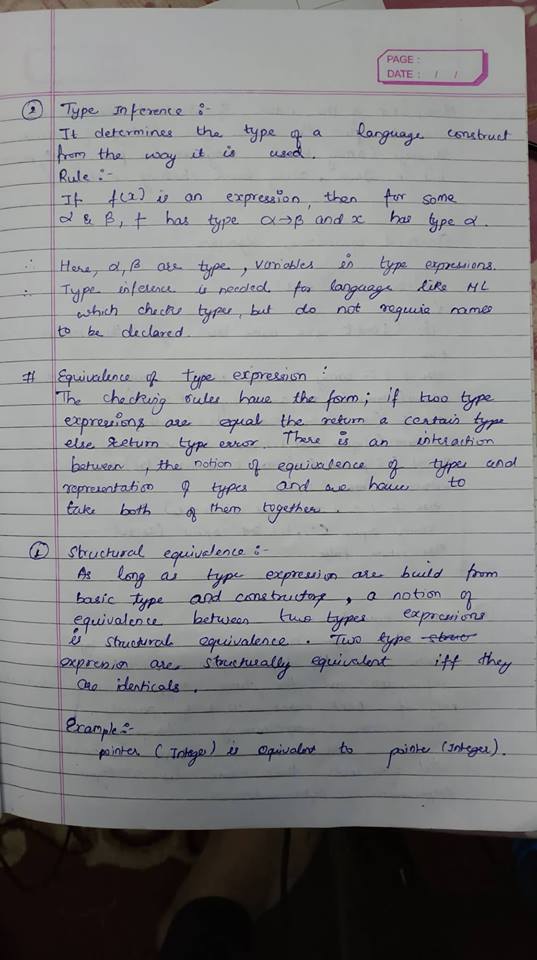 PAGE :
DATE : / /
② Type Inference :-
It determines the type of a language construct
from the way it is used.
Rule :-
If f(x) is an expression, then for some
α & β, f has type α→β and x has type α.
∴ Here, α, β are type, variables in type expressions.
∴ Type inference is needed for language like ML
which checks types, but do not require names
to be declared.
# Equivalence of Type expression :
The checking rules have the form; if two type
expressions are equal the return a certain type
else return type error. There is an interaction
between, the notion of equivalence of types and
representation of types and we have to
take both of them together.
① Structural equivalence :-
As long as type expression are build from
basic type and constructors, a notion of
equivalence between two types expressions
is structural equivalence. Two type struc
expression are structurally equivalent iff they
are identicals.
Example :-
pointer (Integer) is equivalent to pointer (Integer).